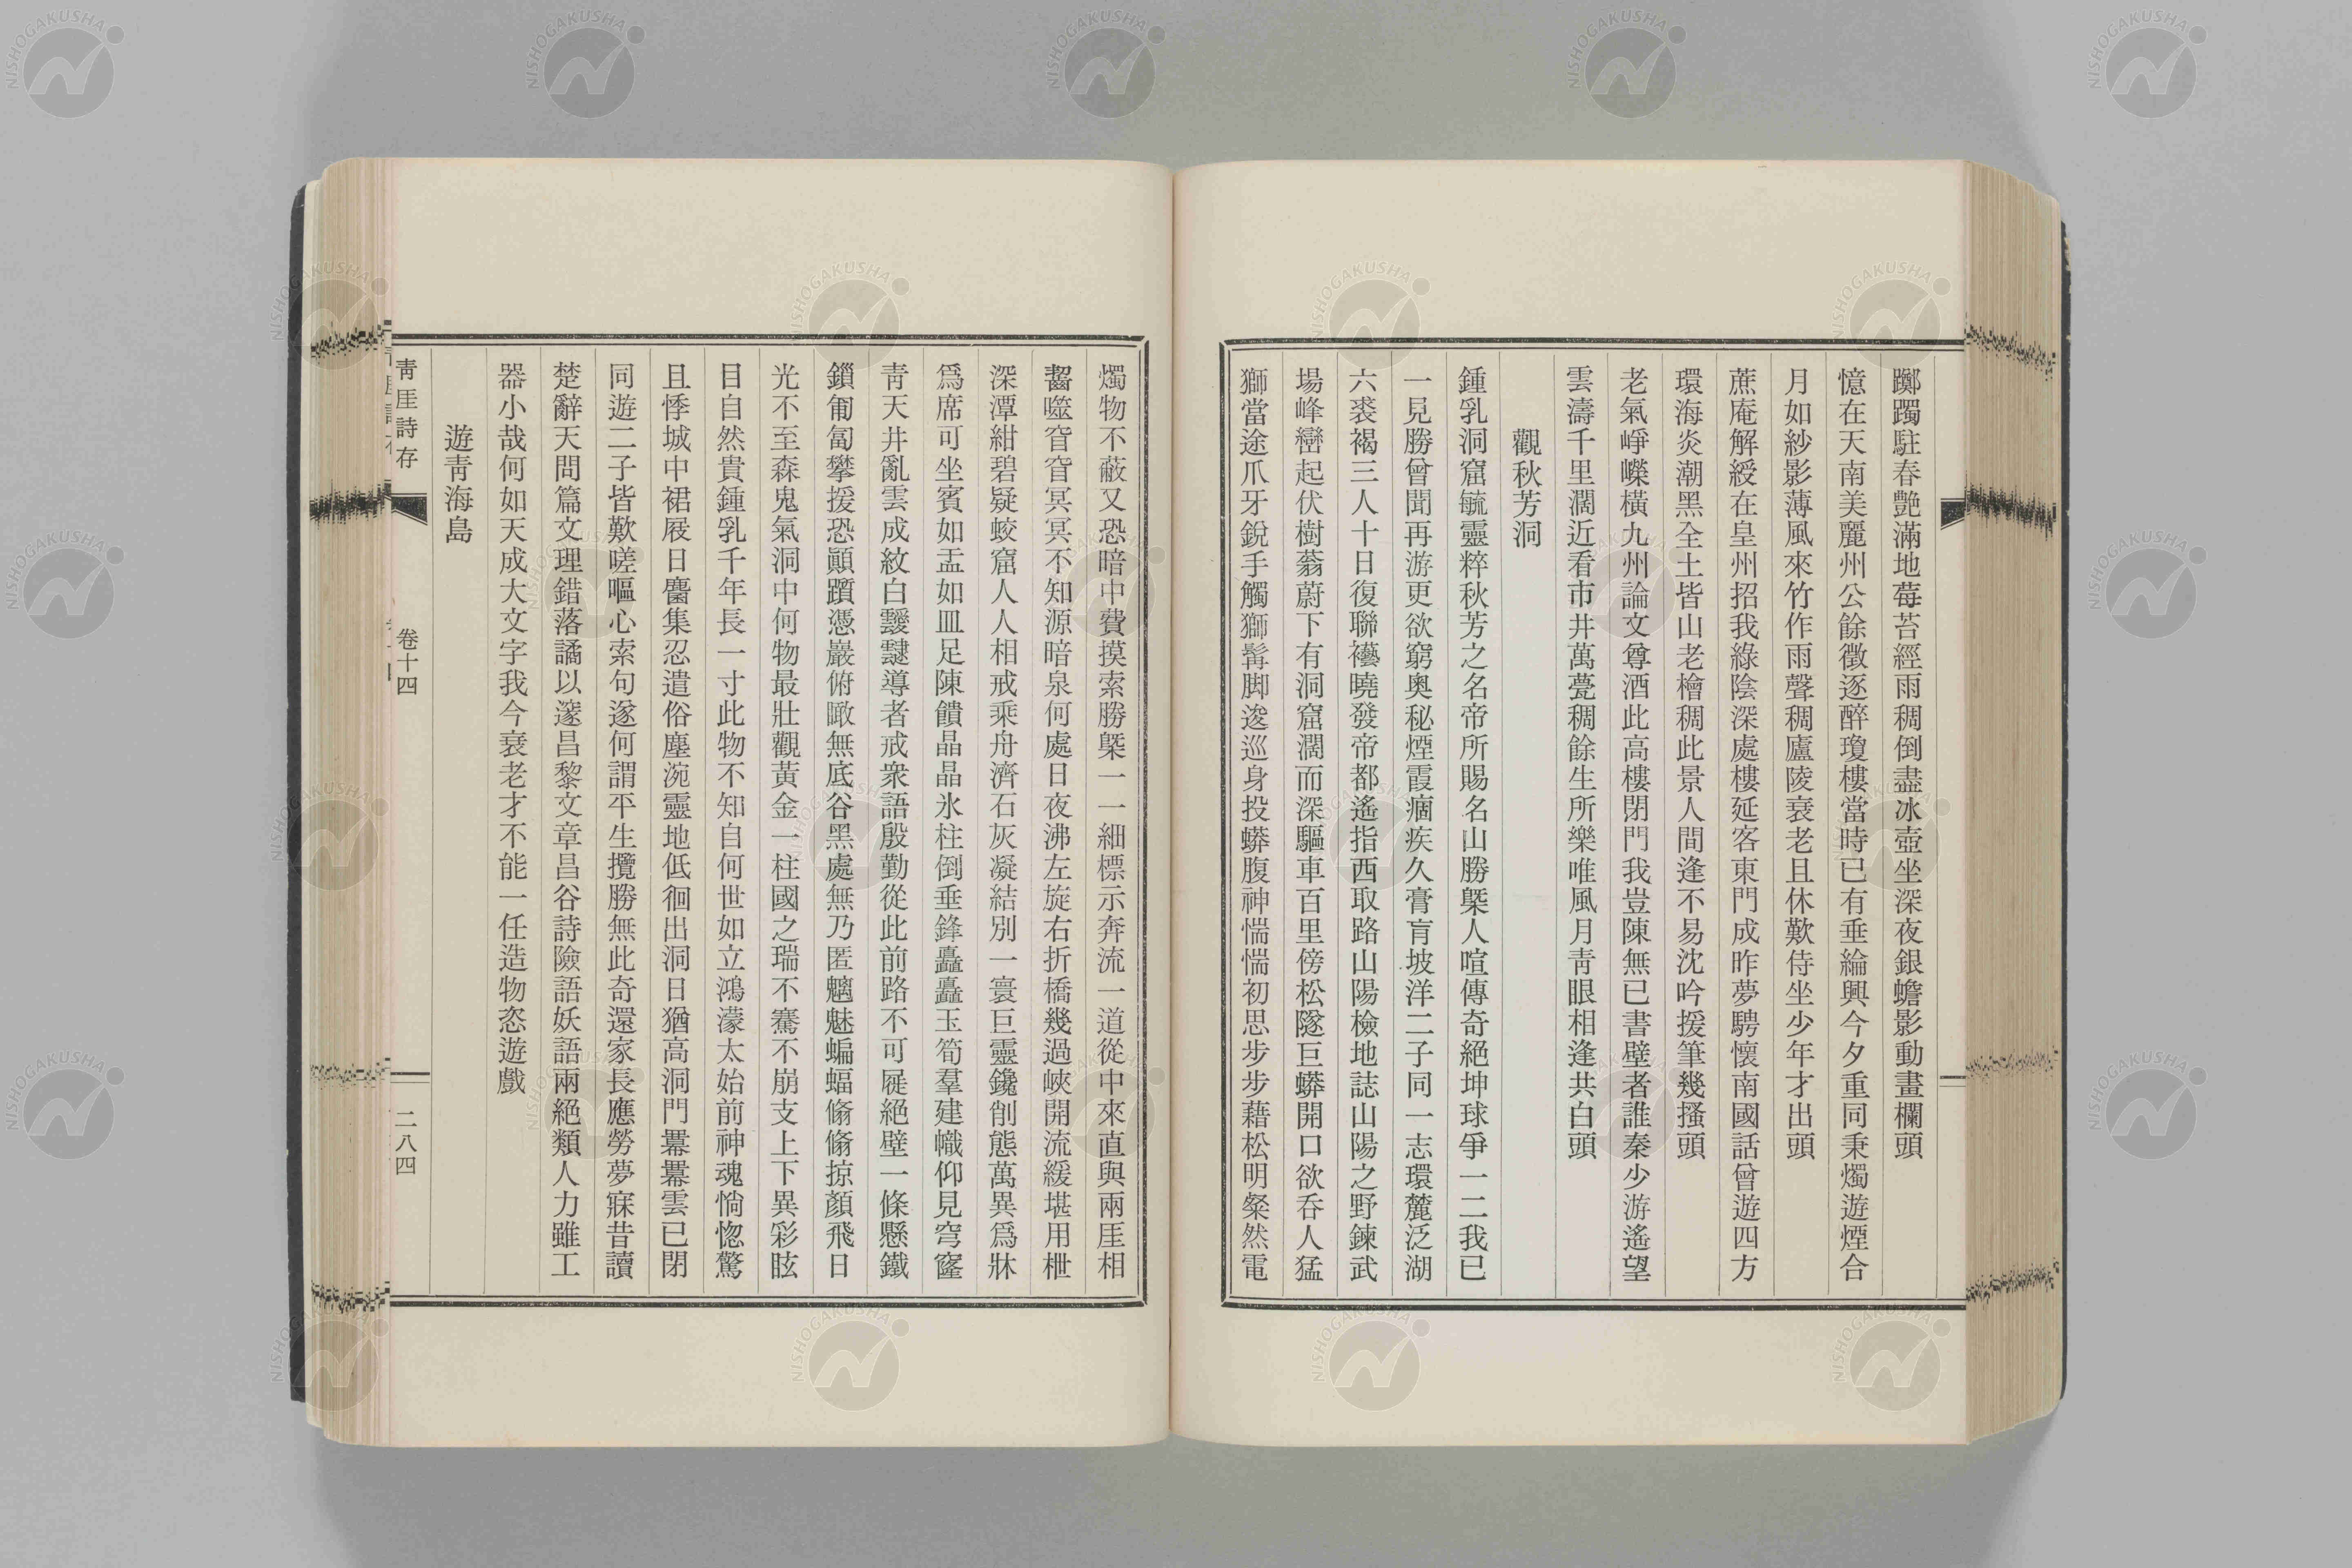 躑躅駐春艷滿地莓苔經雨稠倒盡冰壺坐深夜銀蟾影動畫欄頭
憶在天南美麗州公餘徵逐醉瓊樓當時已有垂綸興今夕重同秉燭遊煙合
月如紗影薄風來竹作雨聲稠廬陵衰老且休歎侍坐少年才出頭
蔗庵解綬在皇州招我綠陰深處樓延客東門成昨夢騁懷南國話曾遊四方
環海炎潮黑全土皆山老檜稠此景人間逢不易沈吟援筆幾搔頭
老氣崢嶸橫九州論文尊酒此高樓閉門我豈陳無已書壁者誰秦少游遙望
雲濤千里濶近看市井萬甍稠餘生所樂唯風月青眼相逢共白頭
觀秋芳洞
鍾乳洞窟毓靈粹秋芳之名帝所賜名山勝槩人喧傳奇絕坤球爭一二我已
一見勝曾聞再游更欲窮奧秘煙霞痼疾久膏肓坡洋二子同一志環麓泛湖
六裘褐三人十日復聯襼曉發帝都遙指西取路山陽檢地誌山陽之野鍊武
場峰巒起伏樹蓊蔚下有洞窟濶而深驅車百里傍松隧巨蟒開口欲呑人猛
獅當途爪牙銳手觸獅髯脚逡巡身投蟒腹神惴惴初思步步藉松明粲然電
燭物不蔽又恐暗中費摸索勝槩一一細標示奔流一道從中來直與兩厓相
齧噬窅窅冥冥不知源暗泉何處日夜沸左旋右折橋幾過峽開流緩堪用枻
深潭紺碧疑蛟窟人人相戒乘舟濟石灰凝結別一寰巨靈鑱削態萬異爲牀
爲席可坐賓如盂如皿足陳饋晶晶氷柱倒垂鋒矗矗玉筍羣建幟仰見穹窿
靑天井亂雲成紋白靉靆導者戒衆語殷勤從此前路不可屣絕壁一條懸鐵
鎻匍匐攀援恐顚躓憑巖俯瞰無底谷黑處無乃匿魑魅蝙蝠翛翛掠顏飛日
光不至森鬼氣洞中何物最壯觀黃金一柱國之瑞不騫不崩支上下異彩眩
目自然貴鍾乳千年長一寸此物不知自何世如立鴻濛太始前神魂惝惚驚
且悸城中裙屐日麕集忍遣俗塵涴靈地低徊出洞日猶高洞門羃羃雲已閉
同遊二子皆歎嗟嘔心索句遂何謂平生攬勝無此奇還家長應勞夢寐昔讀
楚辭天問篇文理錯落譎以邃昌黎文章昌谷詩險語妖語兩絕類人力雖工
器小哉何如天成大文字我今衰老才不能一任造物恣遊戲
遊靑海島
靑厓詩存
卷十四
二八四